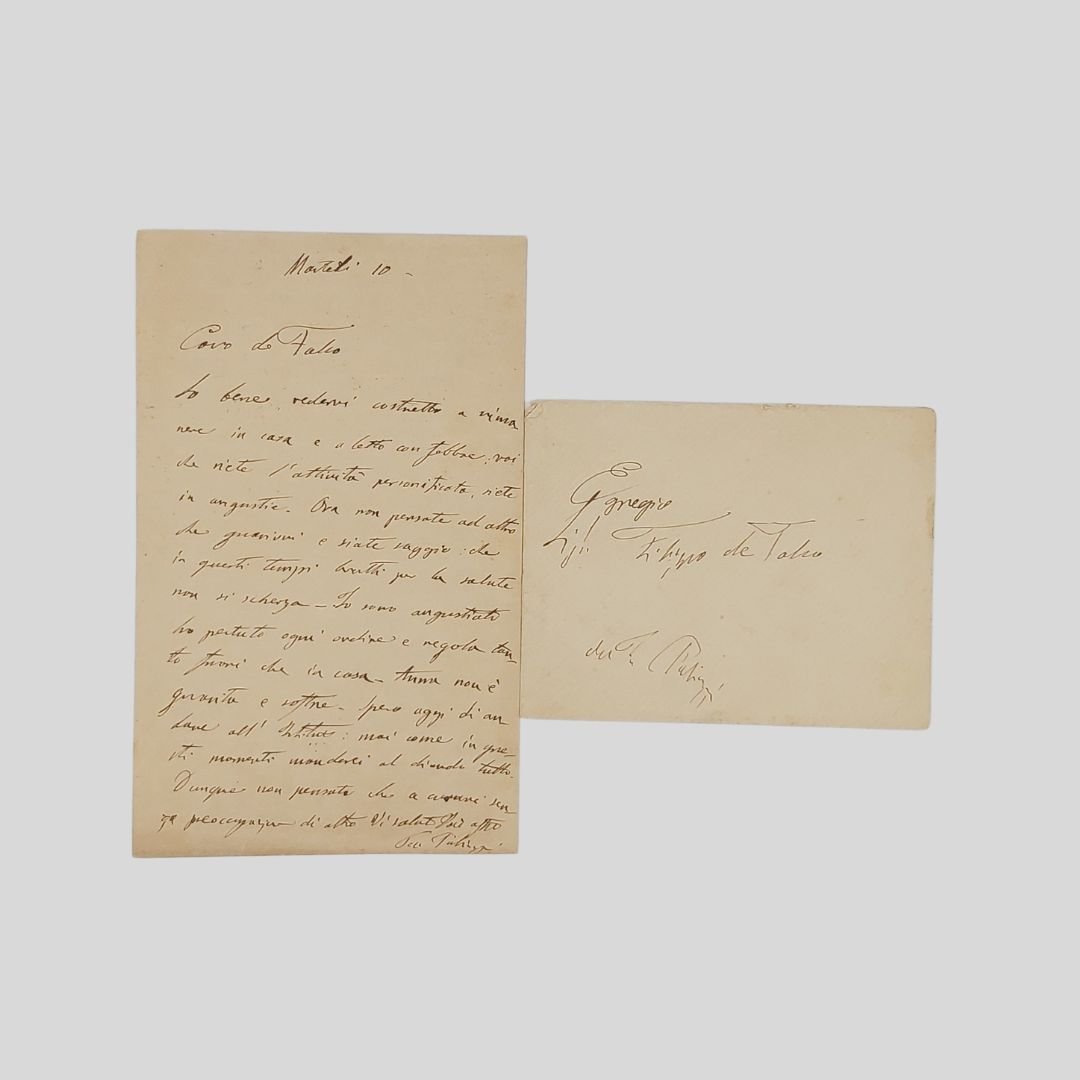 Martedi 10 -
Caro de Falco
So bene vedervi costretto a rima
nere in casa e a letto con febbre; voi
che siete l'attività personificata, siete
in angustie. Ora non pensate ad altro
che guarirvi e siate saggio: che
in questi tempi brutti per la salute
non si scherza - Io sono angustiato
ho perduto ogni ordine e regola tan-
to fuori che in casa - Anna non è
guarita e soffre - Spero oggi di an
dare all' : mai come in que-
sti momenti manderei al diavolo tutto.
Dunque non pensate che a curarvi sen
za di altro Vi saluto affo
Palizzi
Egregio
Sig! Filippo de Falco
Palizzi